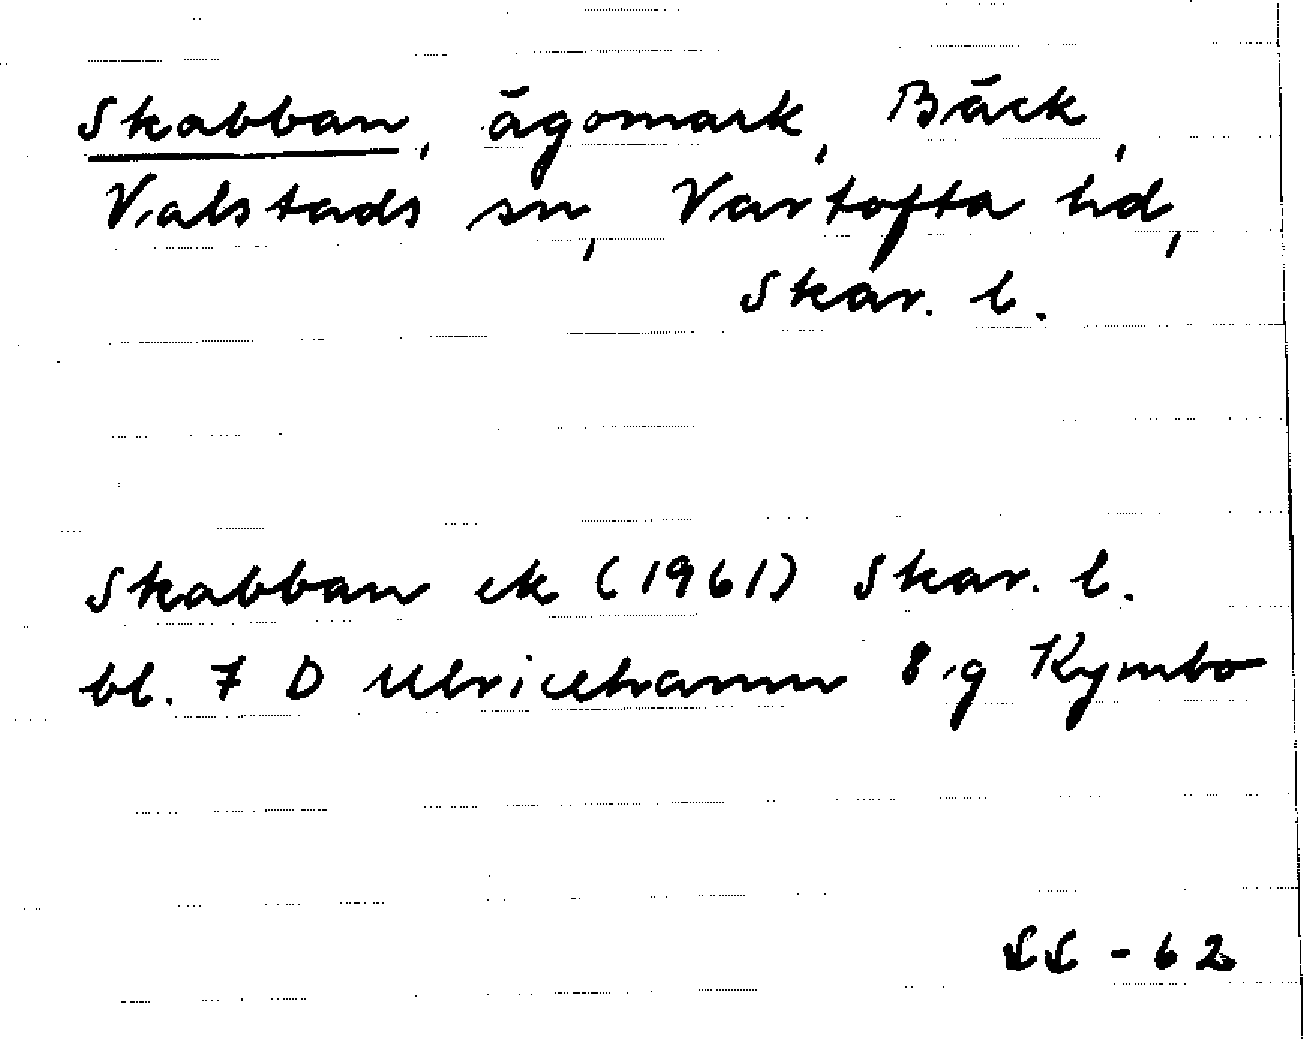 Skabban, ägomark, Bäck,
Valstads sn, Vartofta hd,
Skar. l.
Skabban ek (1961) Skar. l.
bl. 7 D Ulricehamn 8 g Kymbo
LL - 62